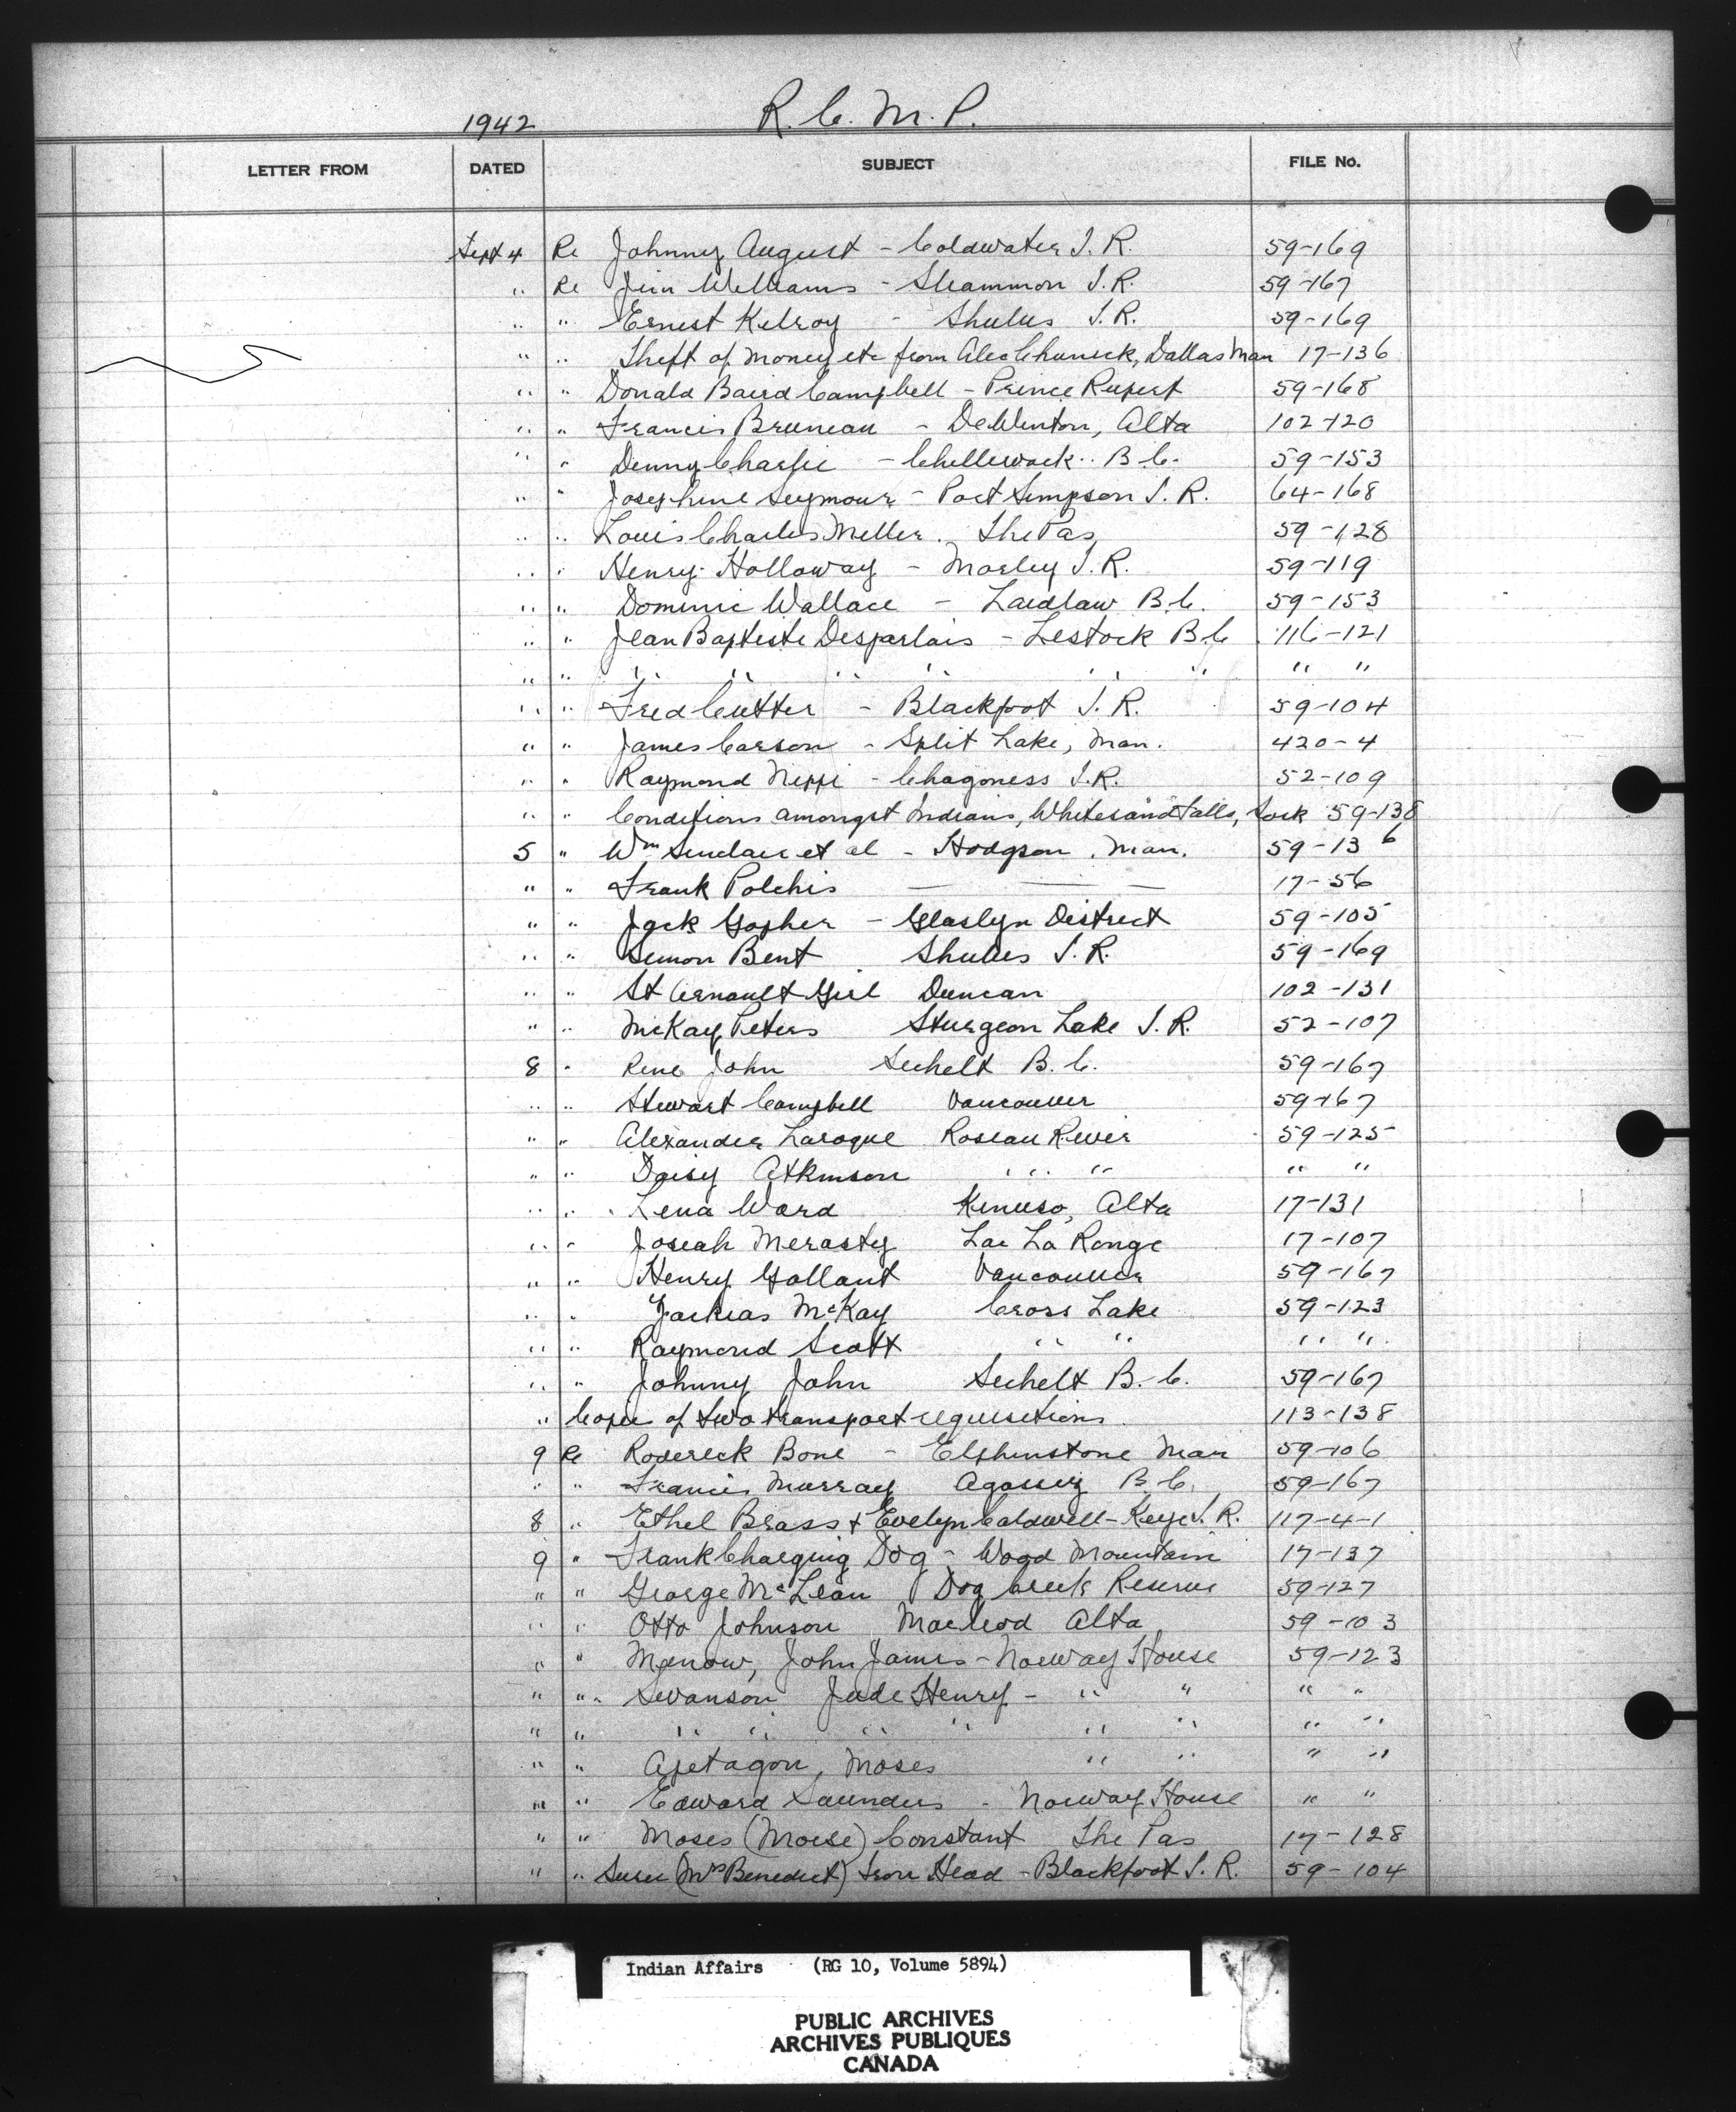 1942 R.C.M.P.
LETTER FROM DATED SUBJECT FILE No.
Sept 4 Re Johnny August - Coldwater I.R. 59-169
" Re Jim Williams - Sleammon I.R. 59-167
" " Ernest Kilroy - Shulus I.R. 59-169
" " Theft of money etc from Alec Chunick, Dallas Man 17-136
" " Donald Baird Campbell - Prince Rupert 59-168
" " Francis Bruneau - DeWinton, Alta 102-120
" " Denny Charlie - Chilliwack B.C. 59-153
" " Josephine Seymour - Port Simpson I.R. 64-168
" " Louis Charles Miller. The Pas 59-128
" " Henry Holloway - Morley I.R. 59-119
" " Dominic Wallace - Laidlaw B.C. 59-153
" " Jean Baptiste Desjarlais - Lestock B.C 116-121
" " " " " " " " " "
" " Fred Cutter - Blackfoot I.R. 59-104
" " James Carson - Split Lake, Man. 420-4
" " Raymond Nippi - Chagoness I.R. 52-109
" " Conditions amongst Indians, Whitesand Falls, Sask 59-138
5 " Wm Sinclair et al - Hodgson, Man. 59-136
" " Frank Polchis — — — 17-56
" " Jack Gopher - Glaslyn District 59-105
" " Simon Bent Shulus I.R. 59-169
" " St Arnault Girl Duncan 102-131
" " McKay Peters Sturgeon Lake I.R. 52-107
8 " Rene John Sechelt B.C. 59-167
" " Stewart Campbell Vancouver 59-167
" " Alexander Laroque Roseau River 59-125
" " Daisy Atkinson " " " " "
" " Lena Ward Kinuso, Alta 17-131
" " Josiah Merasty Lac La Ronge 17-107
" " Henry Gallant Vancouver 59-167
" " Zachias McKay Cross Lake 59-123
" " Raymond Scott " " " "
" " Johnny John Sechelt B.C. 59-167
" Copies of two transport requisitions 113-138
9 Re Roderick Bone - Elphinstone Man 59-106
" " Francis Murray Agassiz B.C. 59-167
8 " Ethel Brass & Evelyn Caldwell - Keys I.R. 117-4-1
9 " Frank Charging Dog - Wood Mountain 17-137
" " George McLean Dog Creek Reserve 59-127
" " Otto Johnson Macleod Alta 59-103
" " Menow, John James - Norway House 59-123
" " Swanson Jude Henry - " " " "
" " " " " " " " " "
" " Apetagon, Moses " " " "
" " Edward Saunders - Norway House " "
" " Moses (Moise) Constant The Pas 17-128
" " (Mrs Benedict) Iron Head - Blackfoot I.R. 59-104
Indian Affairs (RG 10, Volume 5894)
PUBLIC ARCHIVES
ARCHIVES PUBLIQUES
CANADA